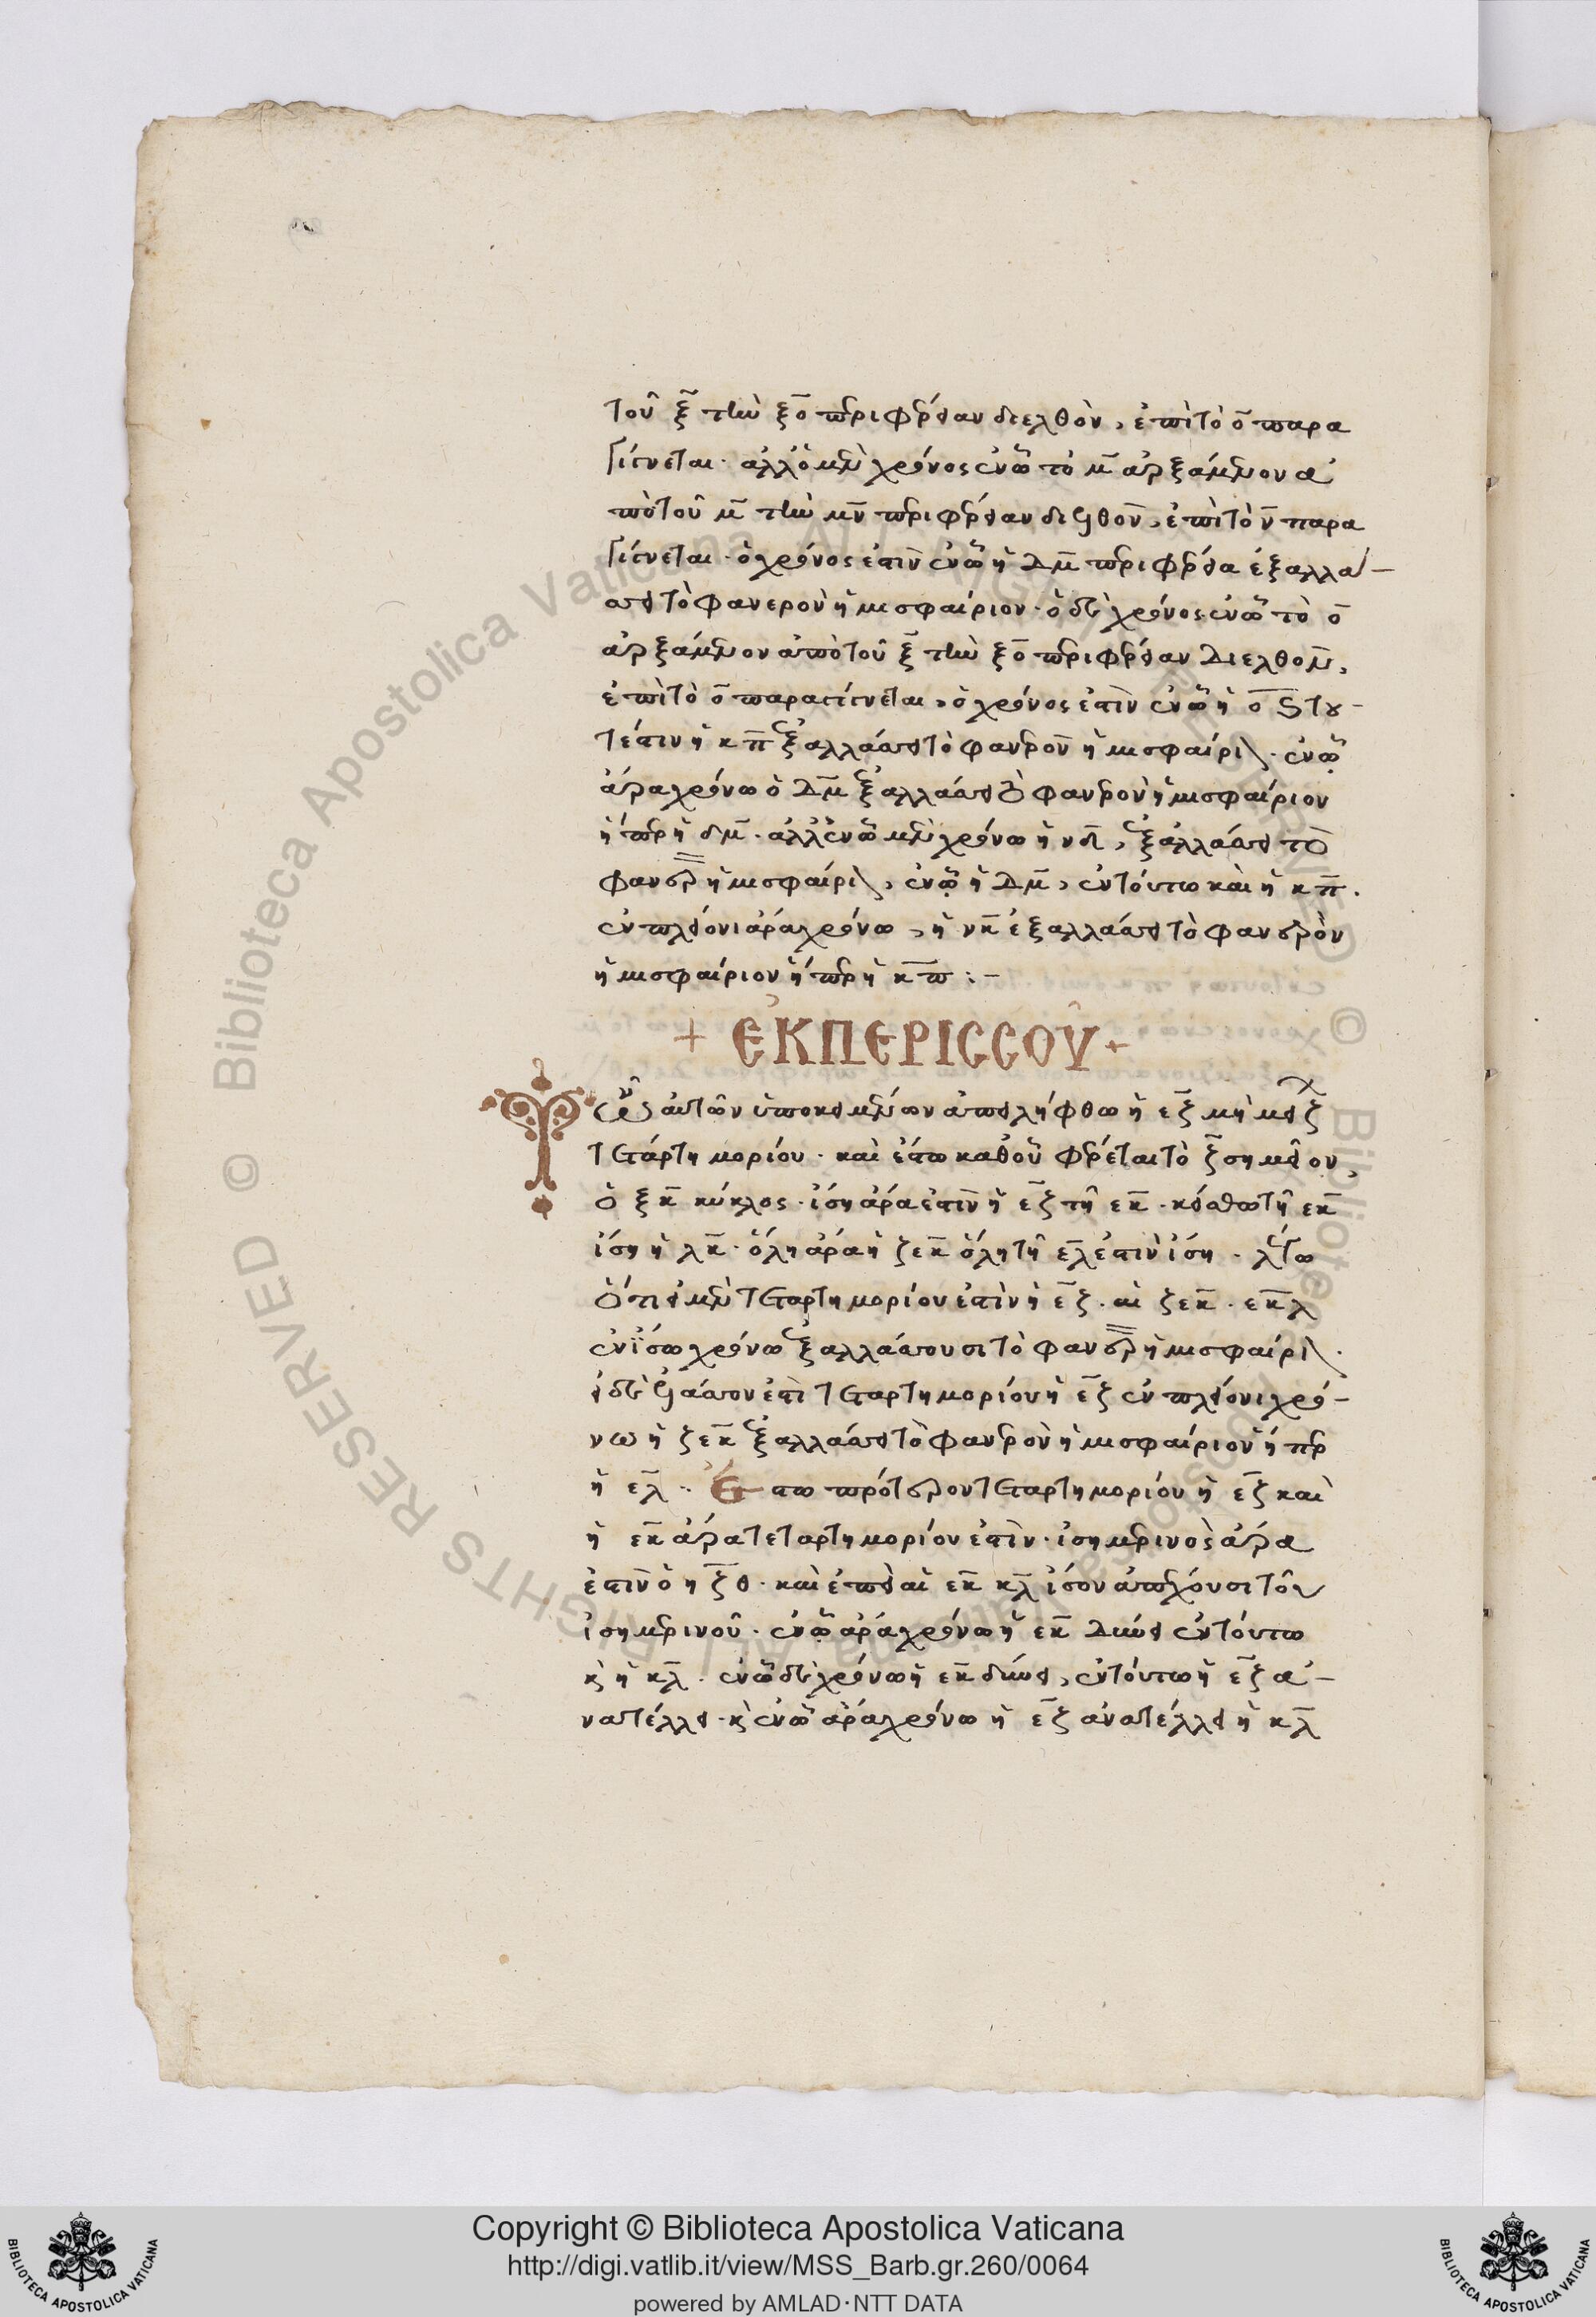 τοῦ ξ̄ τὴν ξ̄ο̄ περιφέρειαν διελθὸν, ἐπὶ τὸ ο̄ παρα
γίνεται · ἀλλ' ὁ μὲν χρόνος ἐν ᾧ τὸ μ̄ ἀρξάμενον ἀ
πὸ τοῦ μ̄ τὴν μ̄ν̄ περιφέρειαν διελθὸν, ἐπὶ τὸ ν̄ παρα
γίνεται · ὁ χρόνος ἐστὶν ἐν ᾧ ἡ δ̄μ̄ περιφέρεια ἐξαλλάσ–
σει τὸ φανερὸν ἡμισφαίριον · ὁ δὲ χρόνος ἐν ᾧ τὸ ο̄
ἀρξάμενον ἀπὸ τοῦ ξ̄ τὴν ξ̄ο̄ περιφέρειαν διελθὸν,
ἐπὶ τὸ ο̄ παραγίνεται, ὁ χρόνος ἐστὶν ἐν ᾧ ἡ ο̄ς̄ του–
τέστιν ἡ κ̄π̄ ἐξαλλάσσει τὸ φανερὸν ἡμισφαίριον · ἐν ᾧ
ἄρα χρόνω ὁ δ̄μ̄ ἐξαλλάσσει τὸ φανερὸν ἡμισφαίριον
ἤπερ ἡ δ̄μ̄ · ἀλλ' ἐν ᾧ μὲν χρόνω ἡ ν̄δ̄, ἐξαλλάσσει τὸ
φανερὸν ἡμισφαίριον, ἐν ᾧ ἡ δ̄μ̄, ἐν τούτω καὶ ἡ κ̄π̄.
ἐν πλείονι ἄρα χρόνω, ἡ ν̄κ̄ ἐξαλλάσσει τὸ φανερὸν
ἡμισφαίριον ἤπερ ἡ κ̄π̄ : –
+ ἘΚΠΕΡΙССΟΥ͂ +
Τῶν αὐτῶν ὑποκειμένων ἀπειλήφθω ἡ ε̄ζ̄ μὴ μείζων
τεταρτημορίου · καὶ ἔστω καθ' οὗ φέρεται τὸ ζ̄ σημεῖον,
ὁ ζ̄κ̄ κύκλος · ἴση ἄρα ἐστὶν ἡ ε̄ζ̄ τῆ ε̄κ̄ · κείσθω τῆ ε̄κ̄
ἴση ἡ λ̄κ̄ · ὅλη ἄρα ἡ ζ̄ε̄κ̄ ὅλη τῆ ε̄λ̄ ἐστὶν ἴση · λέγω
ὅτι εἰ μὲν τεταρτημορίου ἐστὶν ἡ ε̄ζ̄ · αἱ ζ̄ε̄κ̄ · ε̄κ̄λ̄
ἐν ἴσω χρόνω ἐξαλλάσσουσι τὸ φανερὸν ἡμισφαίριον ·
εἰ δὲ ἐλάσσον ἐστὶ τεταρτημορίου ἡ ε̄ζ̄ ἐν πλείονι χρό–
νω ἡ ζ̄ε̄κ̄ ἐξαλλάσσει τὸ φανερὸν ἡμισφαίριον ἤπερ
ἡ ε̄λ̄ · Ἔστω πρότερον τεταρτημορίου ἡ ε̄ζ̄ καὶ
ἡ ε̄κ̄ ἄρα τεταρτημορίου ἐστὶν · ἰσημερινὸς ἄρα
ἐστὶν ὁ η̄ζ̄θ̄ · καὶ ἐπεὶ αἱ ε̄κ̄ κ̄λ̄ ἴσον ἀπέχουσι τοῦ
ἰσημερινοῦ · ἐν ᾧ ἄρα χρόνω ἡ ε̄κ̄ δύνει ἐν τούτω
κ̀ ἡ κ̄λ̄ · ἐν ᾧ δὲ χρόνω ἡ ε̄κ̄ δύνει, ἐν τούτω ἡ ε̄ζ̄ ἀ–
νατέλλει · κ̀ ἐν ᾧ ἄρα χρόνω ἡ ε̄ζ̄ ἀνατέλλει ἡ κ̄λ̄
© Biblioteca Apostolica Vaticana
ALL RIGHTS RESERVED
Copyright © Biblioteca Apostolica Vaticana
http://digi.vatlib.it/view/MSS_Barb.gr.260/0064
powered by AMLAD·NTT DATA
BIBLIOTECA APOSTOLICA VATICANA
BIBLIOTECA APOSTOLICA VATICANA